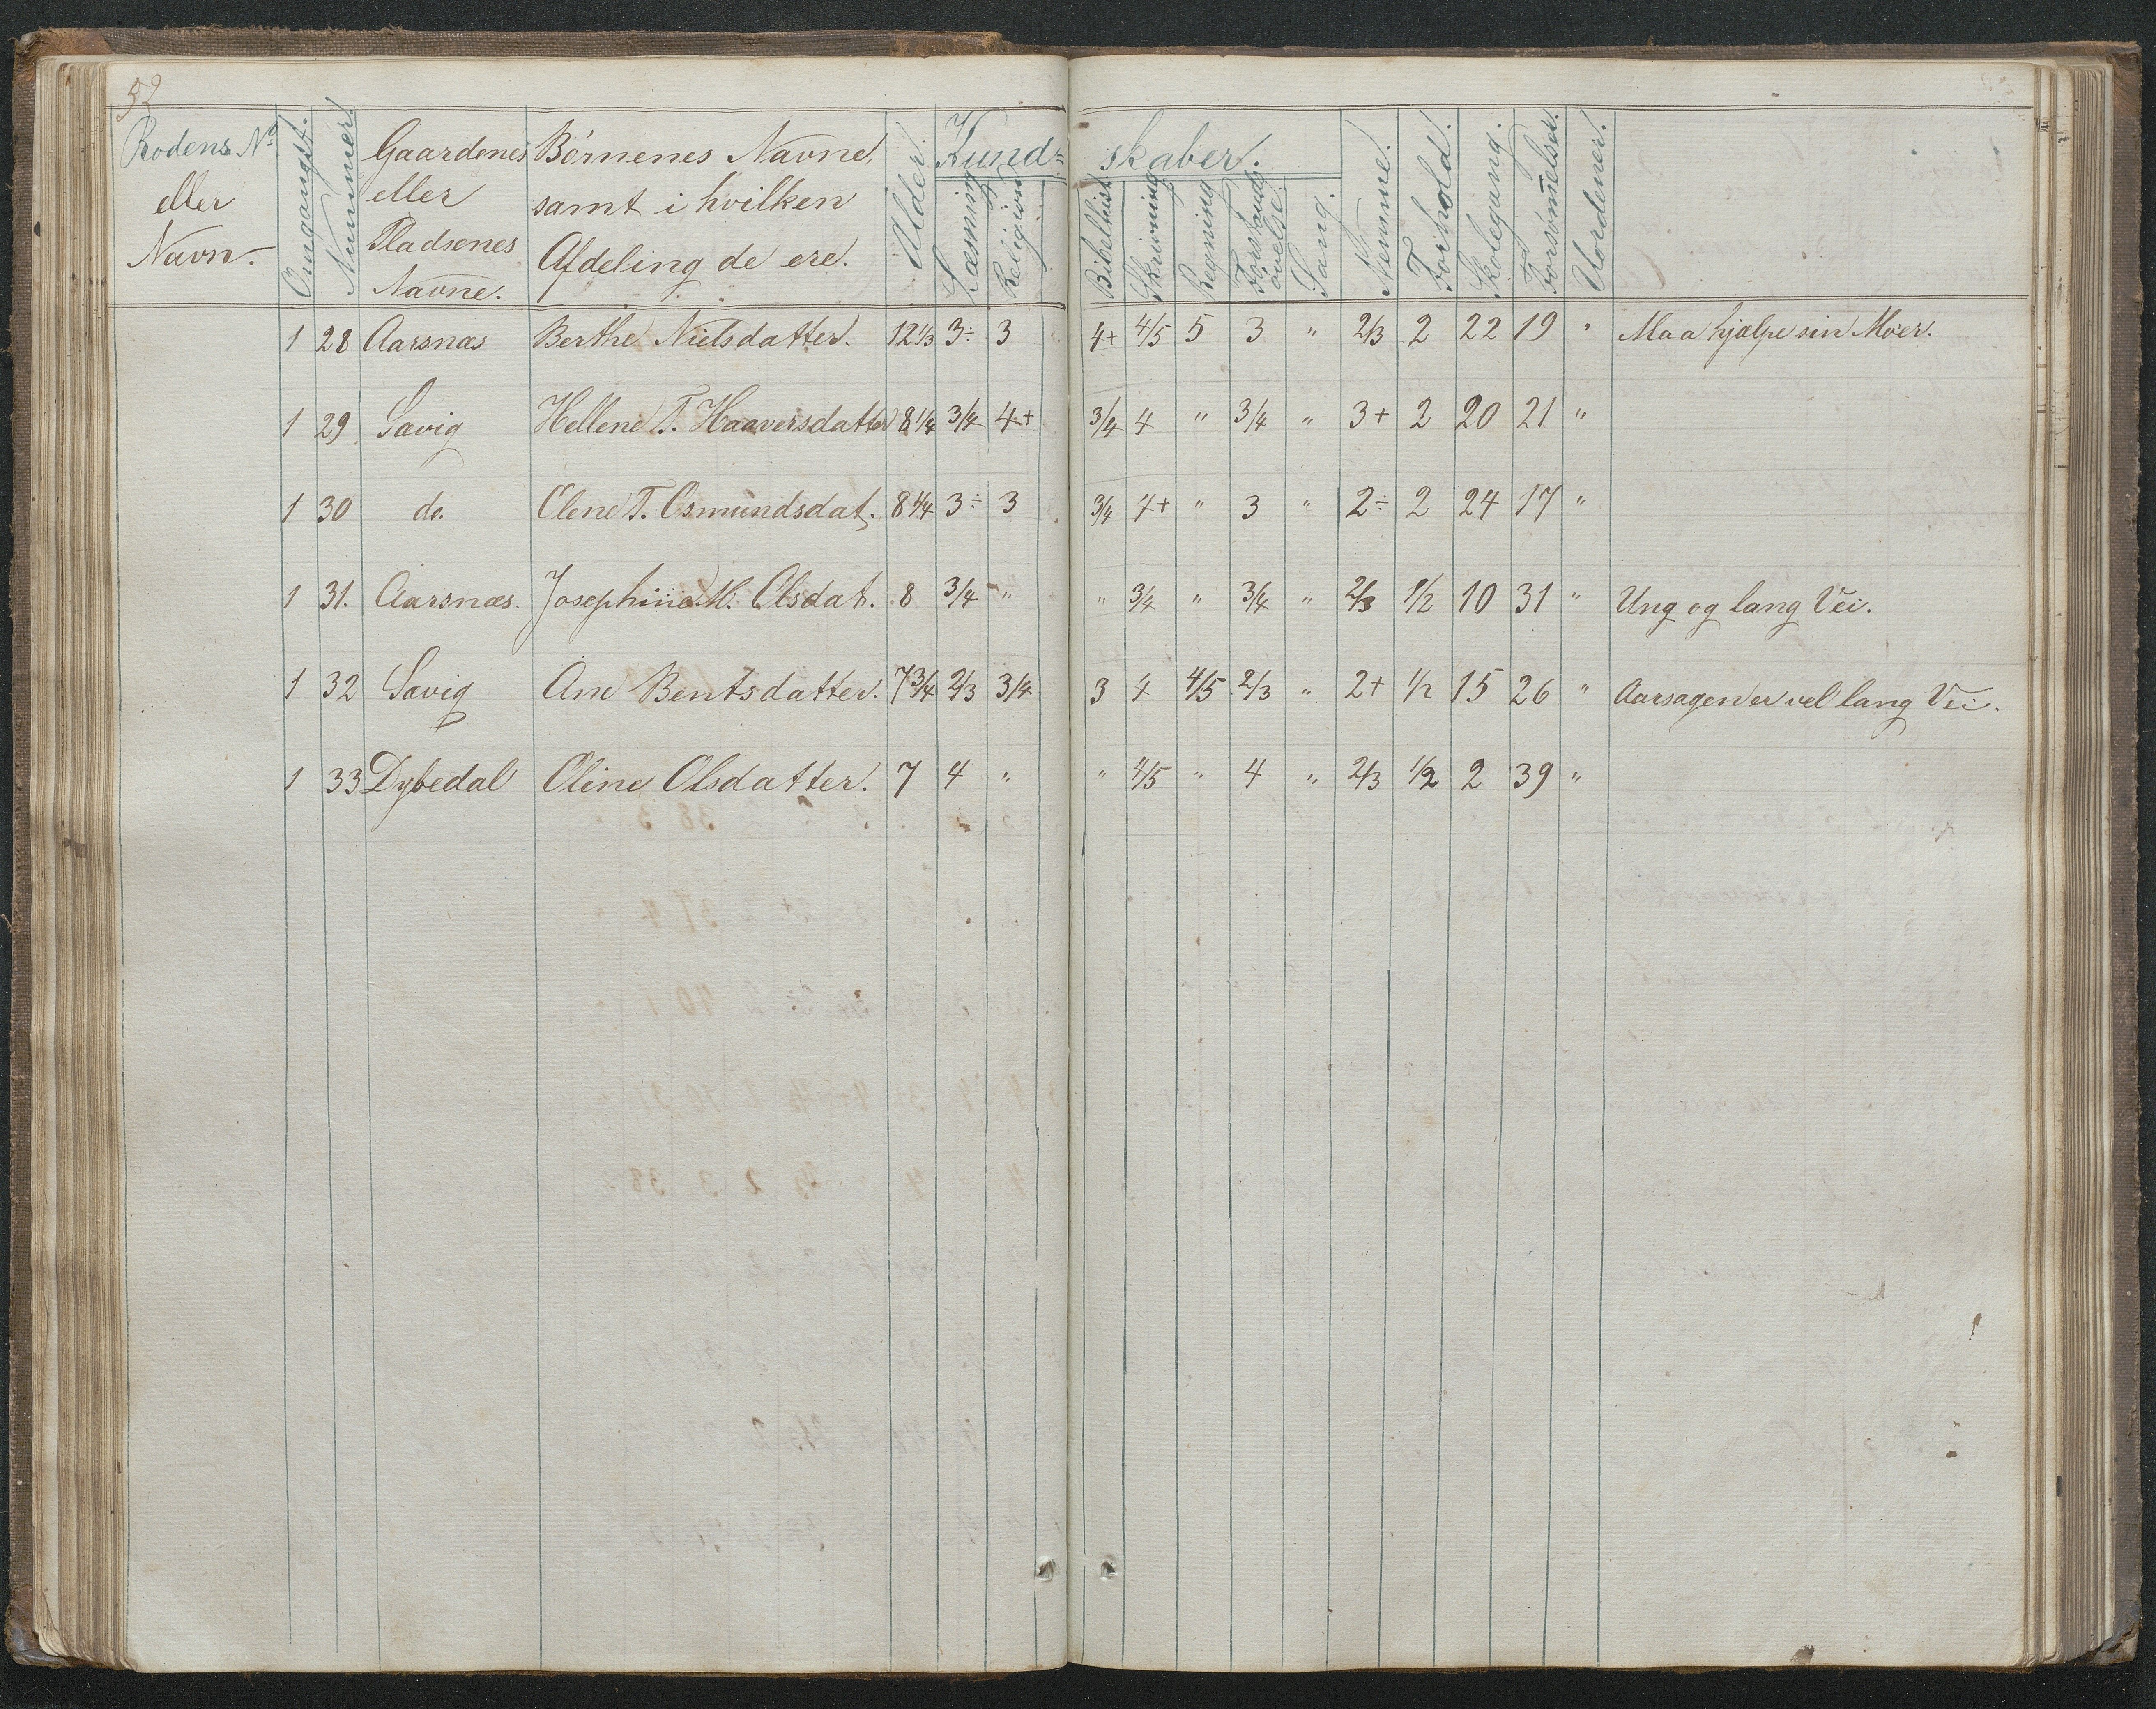 52
Rodens No
eller
Navn.
Omgangst.
Nummer.
Gaardenes
eller
Pladsenes
Navne.
Börnenes Navne,
samt i hvilken
Afdeling de ere.
Alder.
Kund-
skaber.
Læsning
Religion
Bibelhist.
Skrivning
Regning
Forstands
övelse.
Sang.
Nemme.
Forhold.
Skolegang.
Forsömelser.
Uordener.
1 28 Aarsnæs Berthe Nielsdatter. 12 1/3 3÷ 3 4+ 4/5 5 3 " 2/3 2 22 19 " Maa hjælpe sin Moer.
1 29 Savig Hellene T. Haaversdatter 8 1/4 3/4 4+ 3/4 4 " 3/4 " 3+ 2 20 21 "
1 30 do. Olene T. Osmundsdat. 8 1/4 3÷ 3 3/4 4+ " 3 " 2÷ 2 24 17 "
1 31. Aarsnæs. Josephine M. Olsdat. 8 3/4 " " 3/4 " 3/4 " 2/3 1/2 10 31 " Ung og lang Vei.
1 32 Savig Ane Bentsdatter. 7 3/4 2/3 3/4 3 4 4/5 2/3 " 2+ 1/2 15 26 " Aarsagen er vel lang Vei.
1 33 Dybedal Oline Olsdatter. 7 4 " " 4/5 " 4 " 2/3 1/2 2 39 "